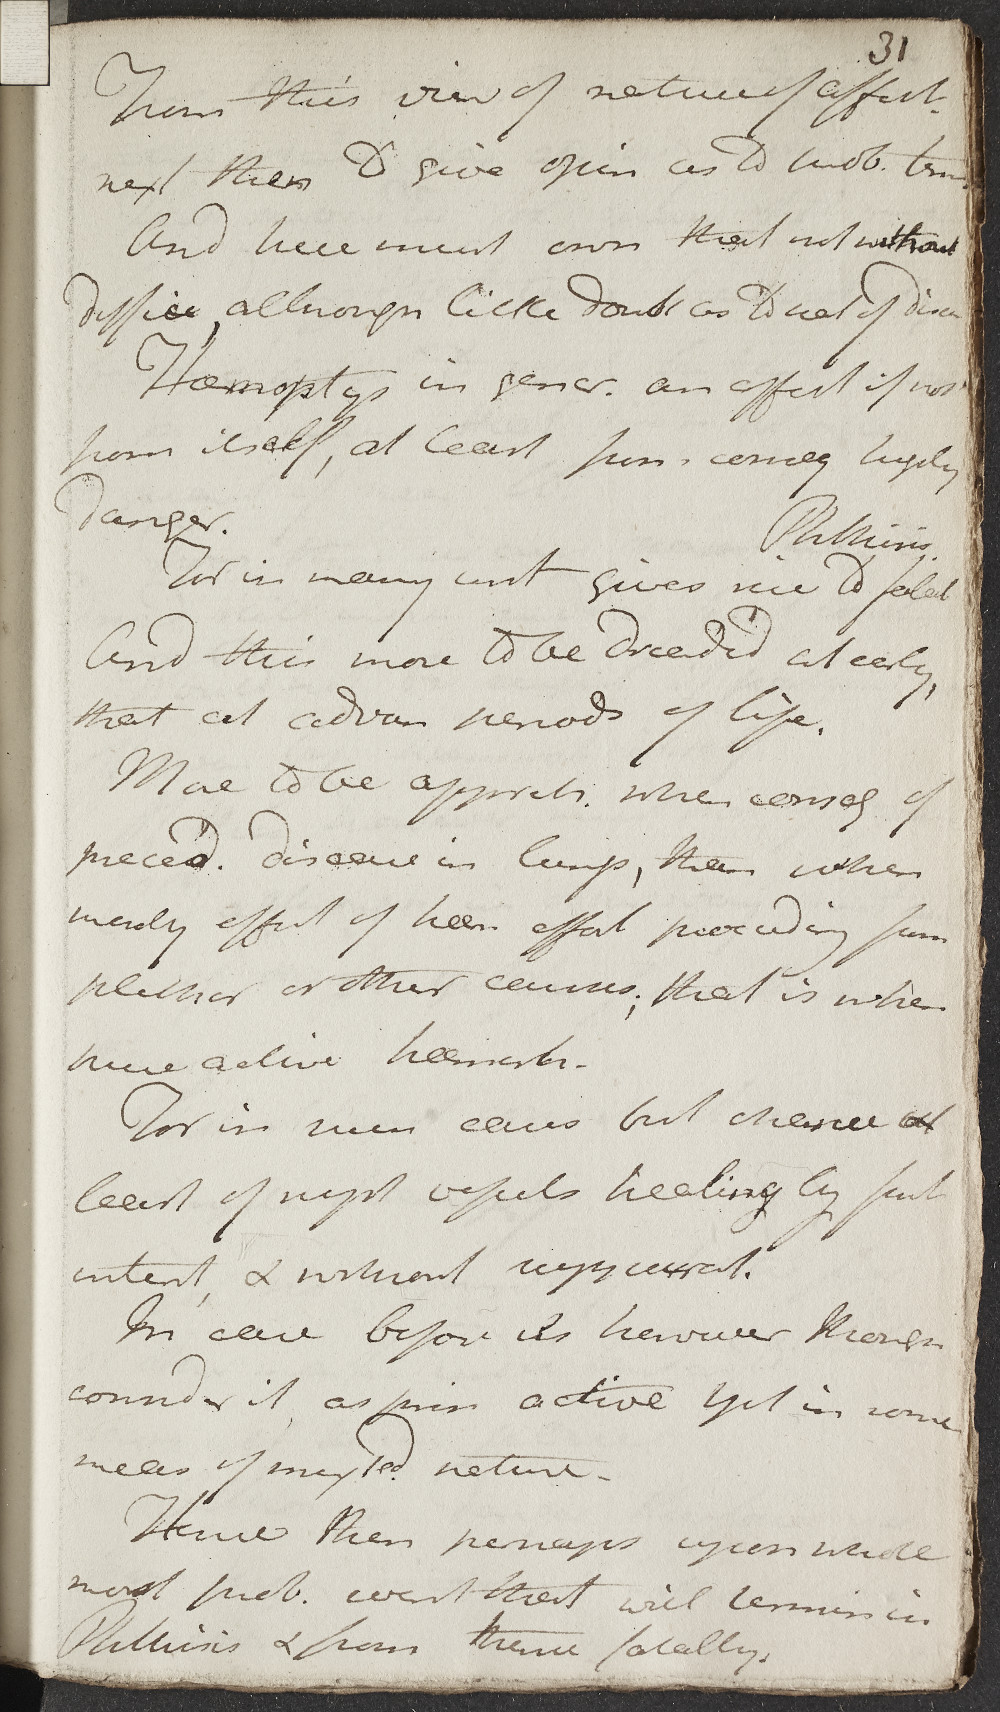 31
From this view of nature of affect.
next then to give opin as to prob. term
And here must own that not without
difficu, although little doubt as to nat of disea
Hæmoptys in gener. an affect if not
from itself, at least from conseq highly
danger.
Phthisis.
For in many inst gives rise to fatal
And this more to be dreaded at early,
that at advan periods of life.
More to be appreh. when conseq of
preced. disease in lungs, than when
merely effect of hæm effort proceeding from
plethor or other causes; that is when
pure active hæmorh.
For in pure cases but chance at
least of rupt vessels healing by first
intent, & without suppurat.
In case before us however though
consider it as prin active yet in some
meas of mixted nature.
Hence then perhaps upon whole
most prob. event that will termin in
Phthisis & from thence fatally.